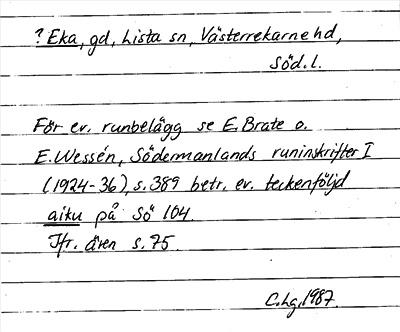 ? Eka, gd, Lista sn, Västerrekarne hd,
Söd.l.
För ev. runbelägg se E. Brate o.
E. Wessén, Södermanlands runinskrifter I
(1924-36), s. 389 betr. ev. teckenföljd
aiku på Sö 104.
Jfr. även s. 75.
C.Lg. 1987.